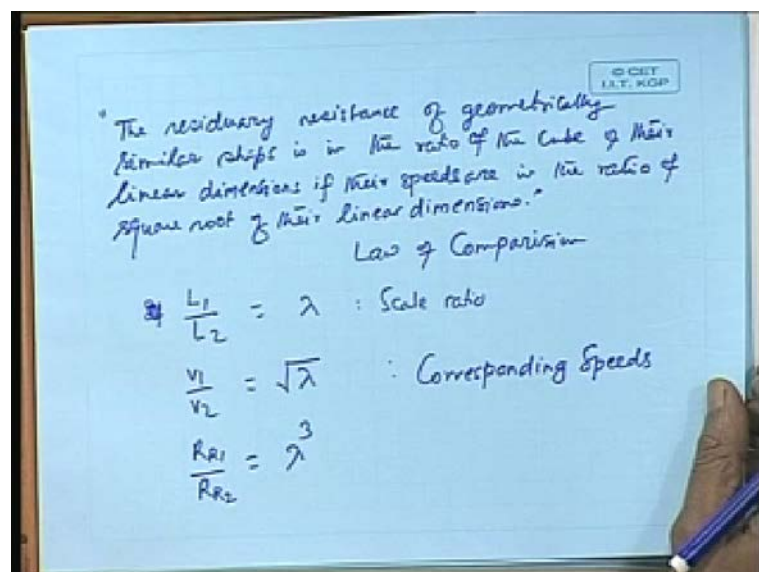 © CET
I.I.T. KGP
"The residuary resistance of geometrically
similar ships is in the ratio of the cube of their
linear dimensions if their speeds are in the ratio of
square root of their linear dimensions."
Law of Comparision
L1/L2 = λ : Scale ratio
V1/V2 = √λ : Corresponding Speeds
RR1/RR2 = λ³